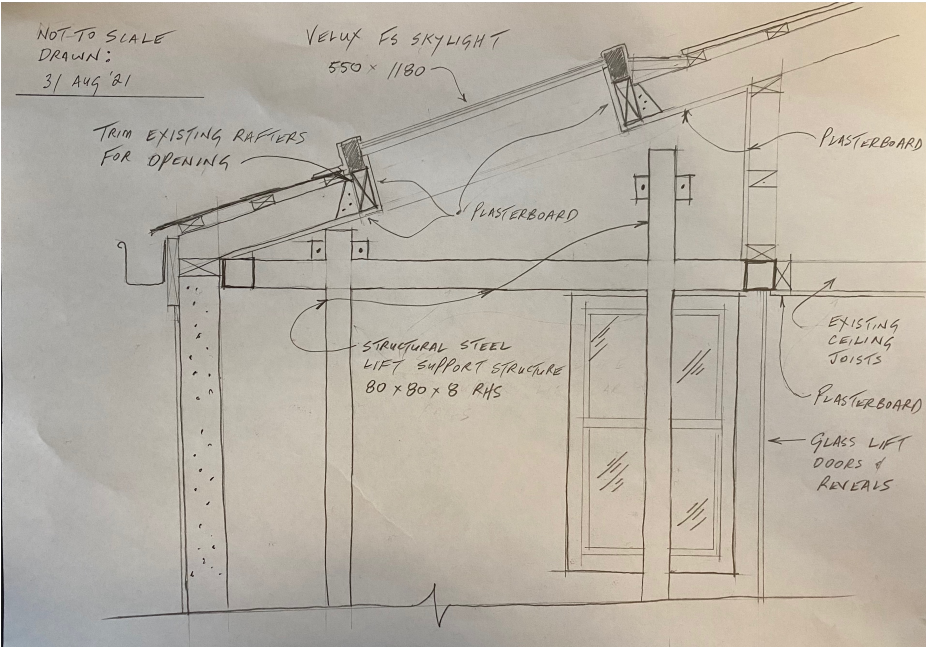 NOT TO SCALE
DRAWN:
31 AUG '21
VELUX FS SKYLIGHT
550 × 1180
TRIM EXISTING RAFTERS
FOR OPENING
PLASTERBOARD
PLASTERBOARD
STRUCTURAL STEEL
LIFT SUPPORT STRUCTURE
80 × 80 × 8 RHS
EXISTING
CEILING
JOISTS
PLASTERBOARD
GLASS LIFT
DOORS &
REVEALS